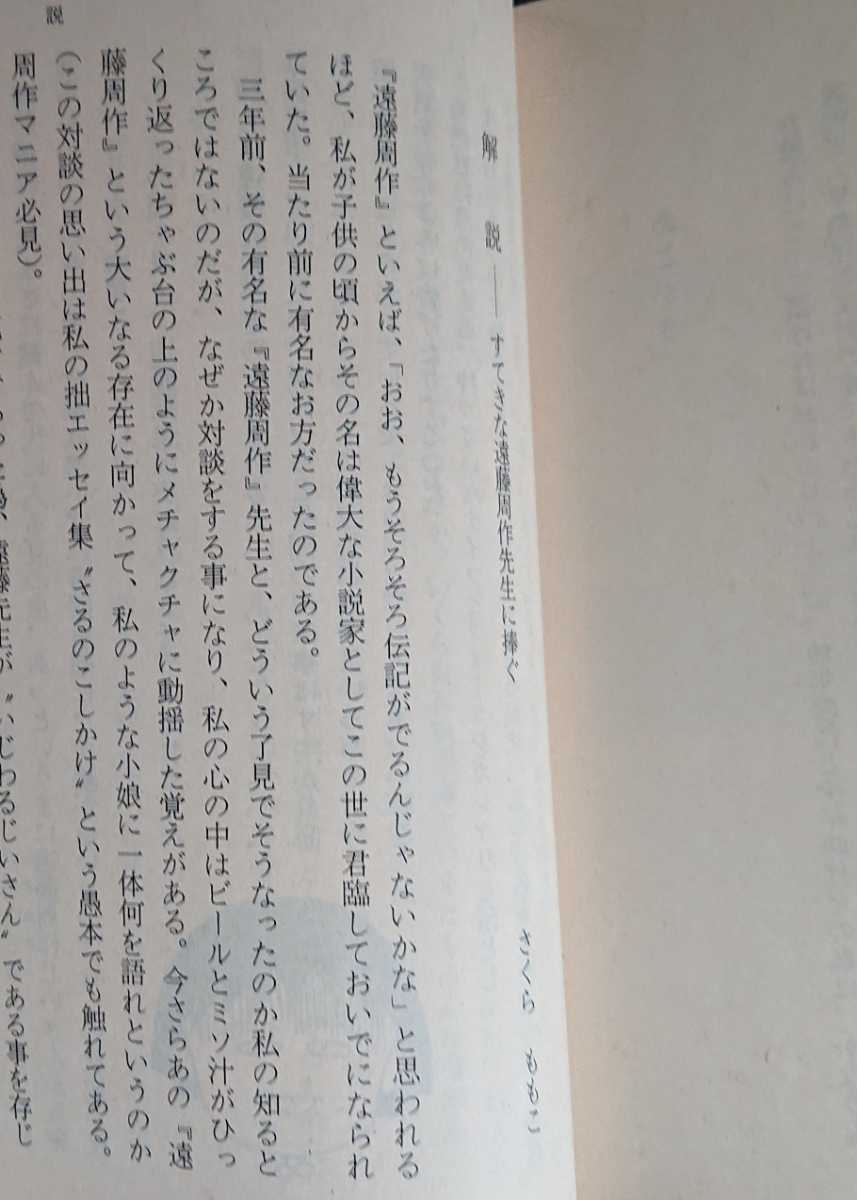 説
解　説――すてきな遠藤周作先生に捧ぐ
さくら　ももこ
『遠藤周作』といえば、「おお、もうそろそろ伝記がでるんじゃないかな」と思われる
ほど、私が子供の頃からその名は偉大な小説家としてこの世に君臨しておいでになられ
ていた。当たり前に有名なお方だったのである。
三年前、その有名な『遠藤周作』先生と、どういう了見でそうなったのか私の知ると
ころではないのだが、なぜか対談をする事になり、私の心の中はビールとミソ汁がひっ
くり返ったちゃぶ台の上のようにメチャクチャに動揺した覚えがある。今さらあの『遠
藤周作』という大いなる存在に向かって、私のような小娘に一体何を語れというのか
(この対談の思い出は私の拙エッセイ集〝さるのこしかけ〟という愚本でも触れてある。
周作マニア必見)。
遠藤先生が〝いじわるじいさん〟である事を存じ